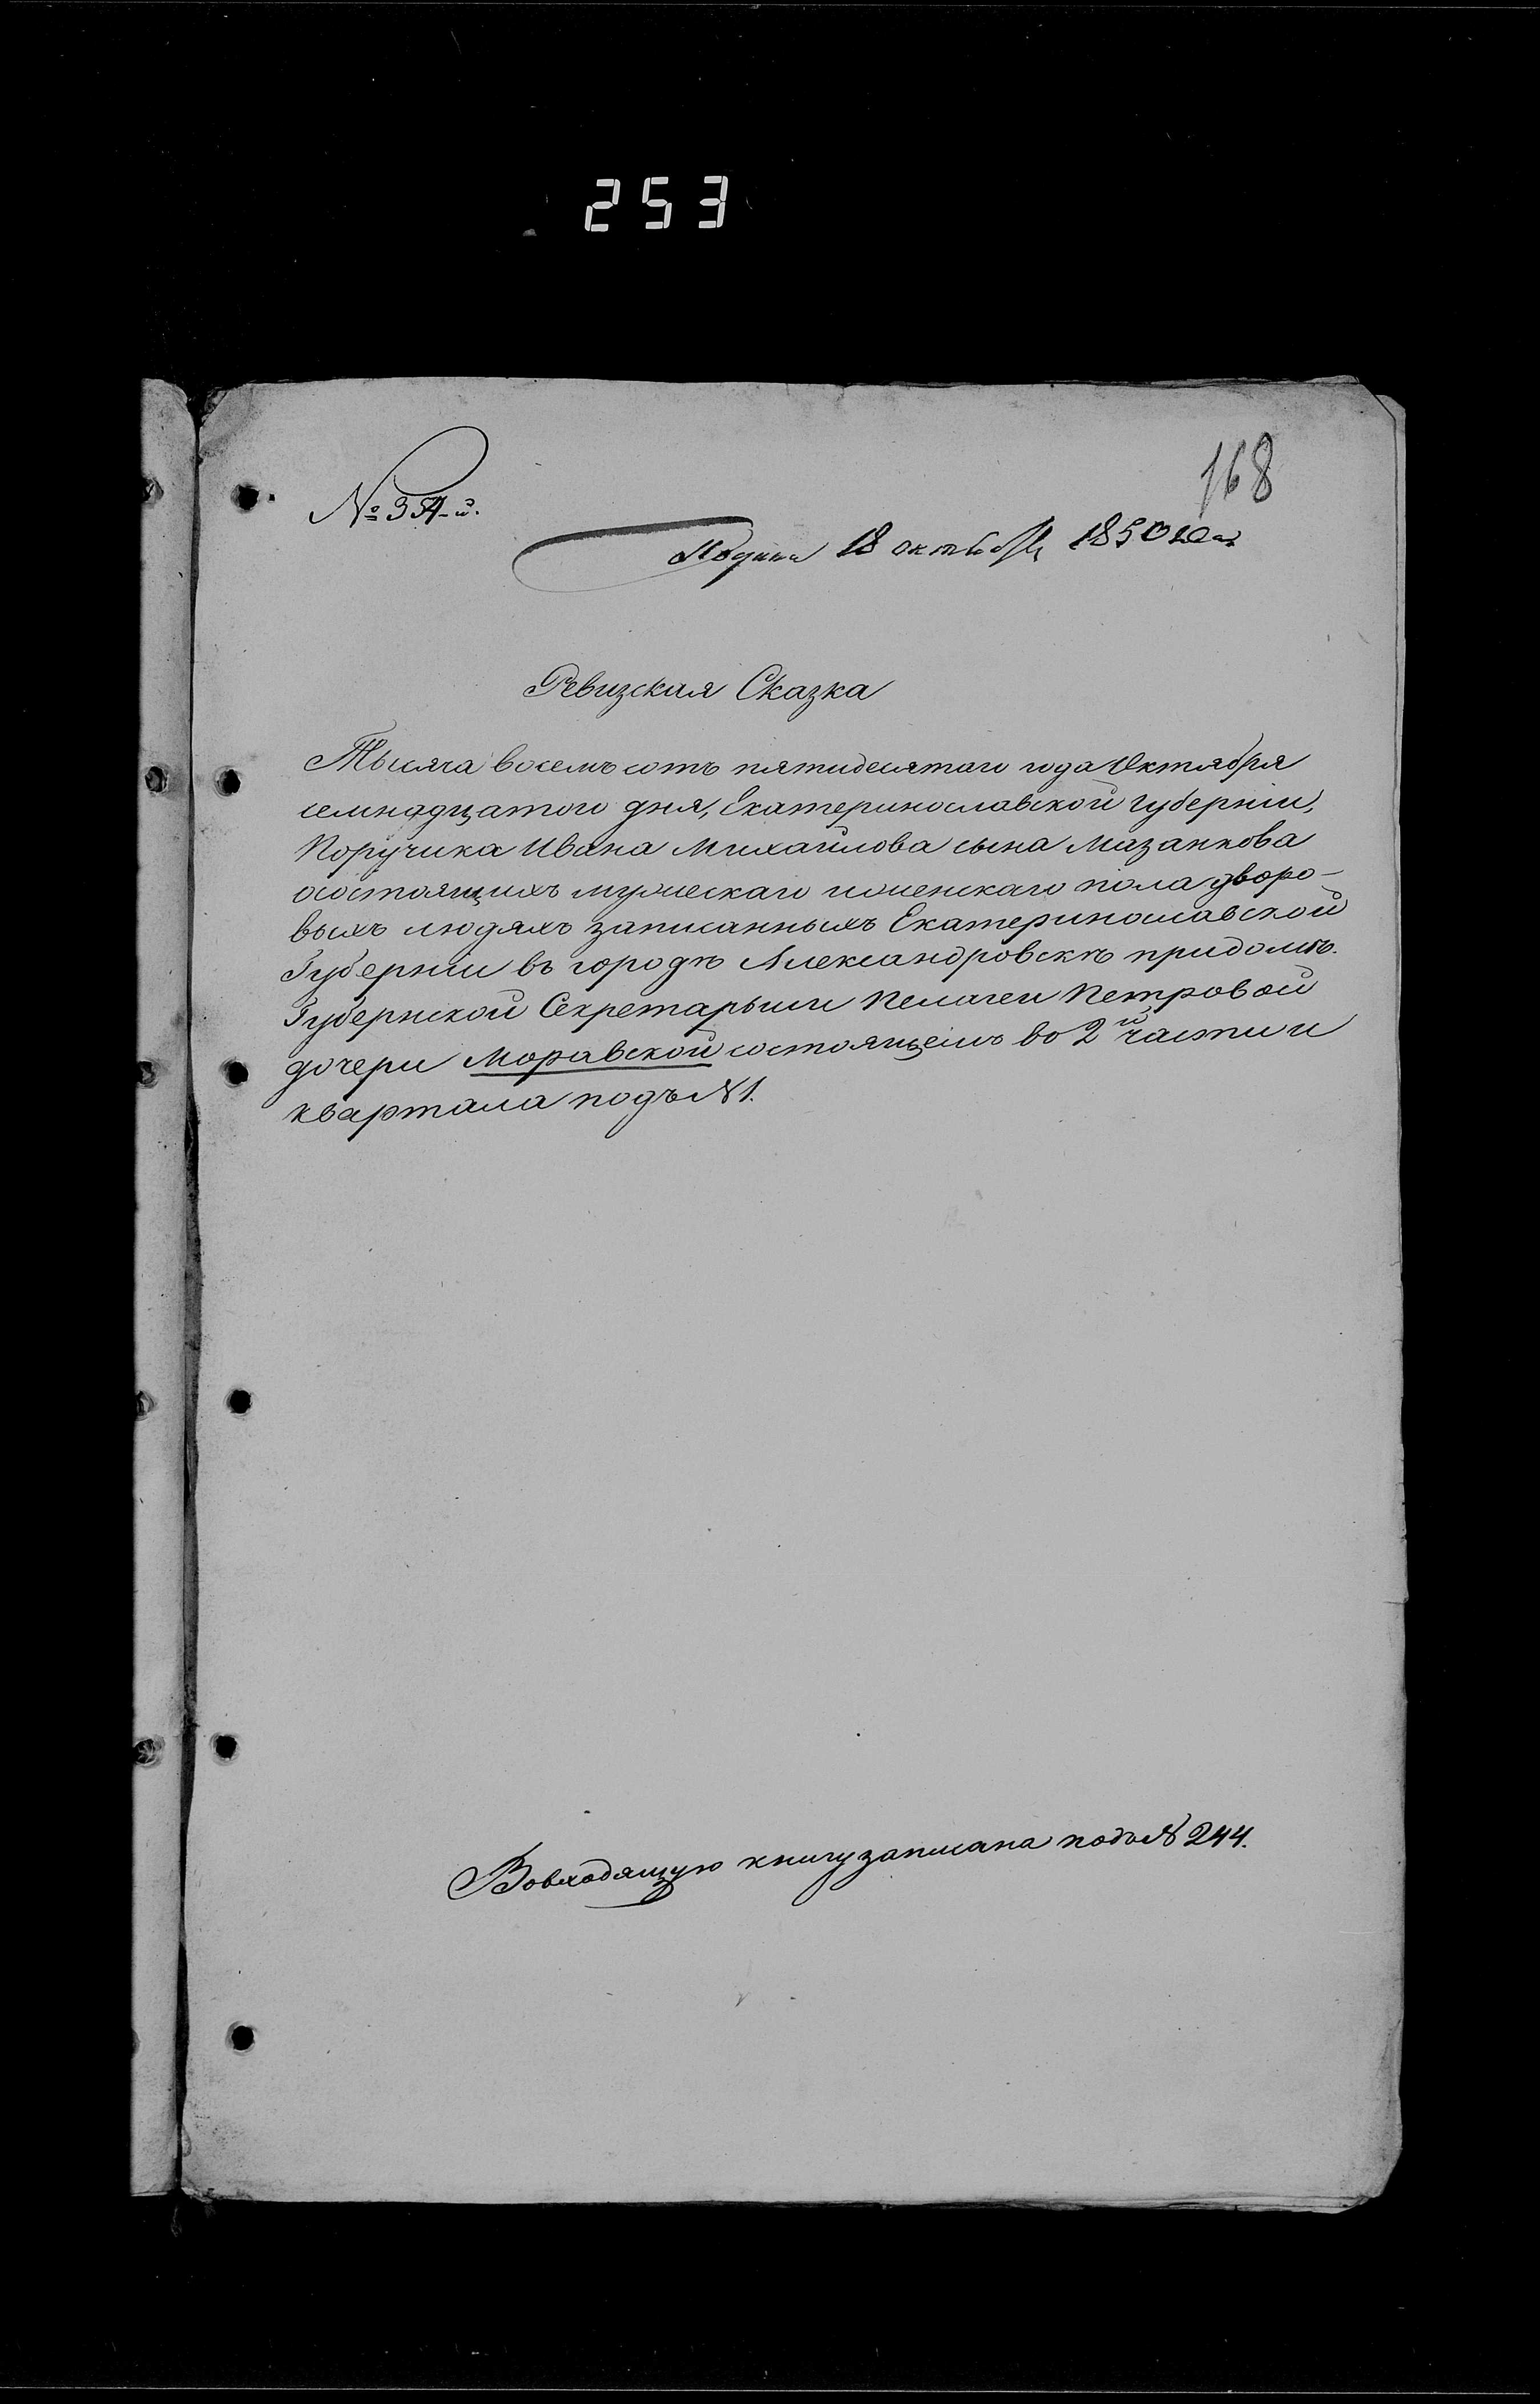 253
168
№ 354-й.
Подана 18 октября 1850 года
Ревизская Сказка
Тысяча восемь сотъ пятидесятаго года Октября
семнадцатого дня, Екатеринославской губерніи,
Поручика Ивана Михайлова сына Мазанкова
осостоящихъ мужескаго иженскаго пола дворо-
выхъ людяхъ записанныхъ Екатеринославской
Губерніи въ городѣ Александровскѣ придомѣ.
Губернской Секретарьши Пелагеи Петровой
дочери Моравской состоящемъ во 2й части и
квартала подъ № 1.
Вовходящую книгу записана подъ № 244.